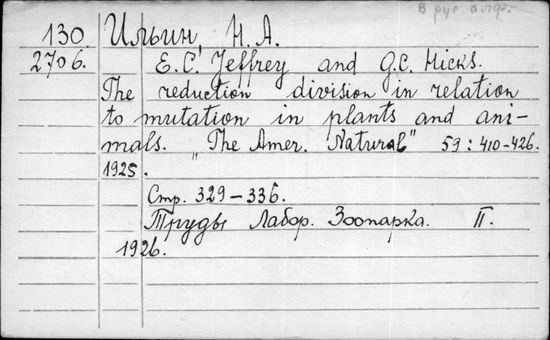 В рус алф.
130. Ильин Н. А.
2706. E. C. Jeffrey and G. C. Hicks.
The reduction division in relation
to mutation in plants and ani-
mals. "The Amer. Natural" 59: 410-426.
1925.
Стр. 329-336.
Труды Лабор. Зоопарка. II.
1926.